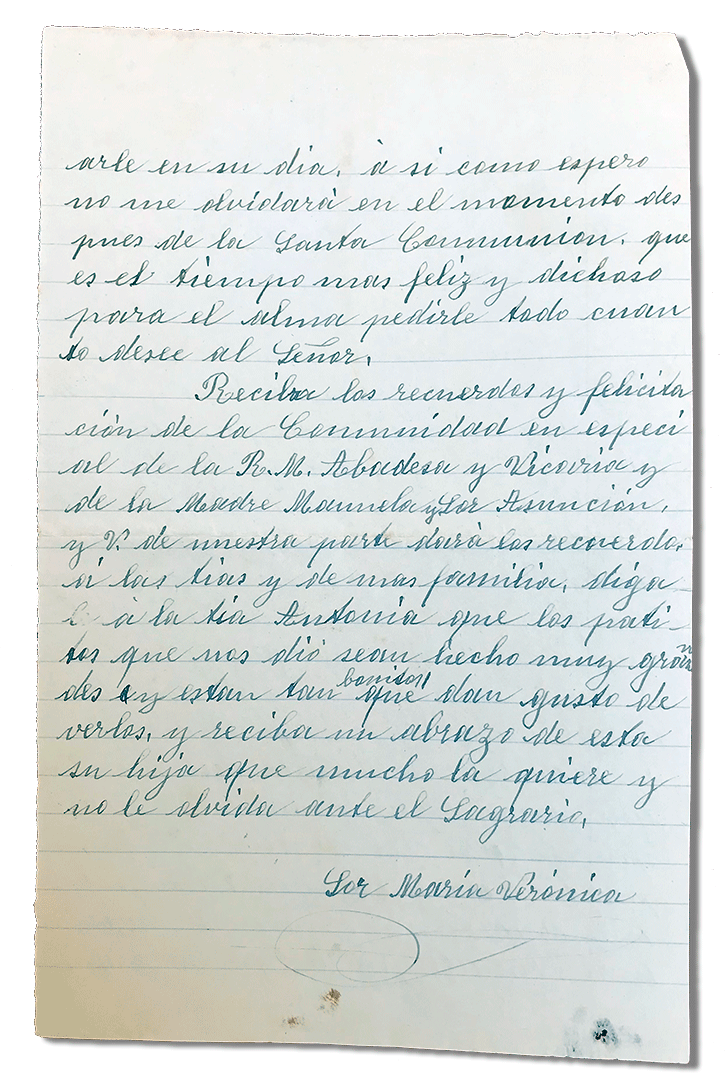 arle en su dia. à si como espero
no me olvidarà en el momento des
pues de la Santa Communion. que
es el tiempo mas feliz y dichoso
para el alma pedirle todo cuan
to desee al Señor.
Reciba los recuerdos y felicita
ción de la Comunidad en especi
al de la R. M. Abadesa y Vicaria y
de la Madre Manuela y Sor Asunción.
y V. de nuestra parte darà los recuerdos
à las tias y de mas familia. diga
à la tia Antonia que los pati-
tos que nos dió sean hecho muy gran
des y estan tan bonitos que dan gusto de
verlos. y reciba un abrazo de esta
su hija que mucho la quiere y
no le olvida ante el Sagrario.
Sor María Verónica